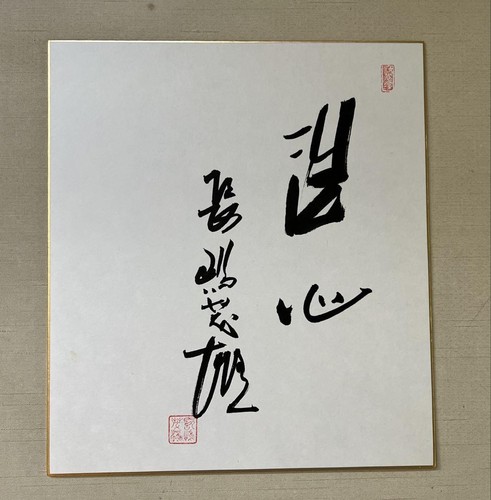 心
長嶋茂雄